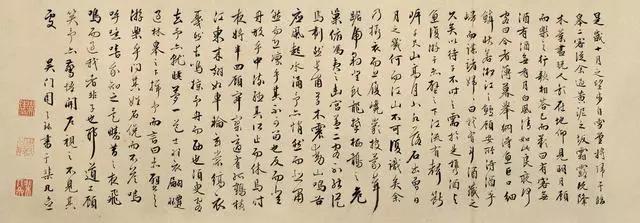 是歲十月之望步自雪堂將歸于臨
皋二客從余過黄泥之坂霜露既降
木葉盡脱人影在地仰見明月顧
而樂之行歌相答已而歎曰有客無
酒有酒無肴月白風清如此良夜何
客曰今者薄暮舉網得魚巨口細
鱗狀若松江之鱸顧安所得酒乎
歸而謀諸婦婦曰我有斗酒藏之
久矣以待子不時之需於是攜酒與
魚復游于赤壁之下江流有聲斷
岸千尺山高月小水落石出曾日
月之幾何而江山不可復識矣余
乃攝衣而上履巉巖披蒙茸
踞虎豹登虬龍攀栖鶻之危
巢俯馮夷之幽宫蓋二客不能從
焉劃然長嘯草木震動山鳴谷
應風起水涌予亦悄然而悲肅
然而恐凜乎其不可留也反而登
舟放乎中流聽其所止而休焉時
夜將半四顧寂寥適有孤鶴横
江東來翅如車輪玄裳縞衣
戛然長鳴掠予舟而西也須臾客
去予亦就睡夢一道士羽衣翩躚
過臨皋之下揖予而言曰赤壁之
游樂乎問其姓名俛而不答嗚
呼噫嘻我知之矣疇昔之夜飛
鳴而過我者非子也耶道士顧
笑予亦驚悟開戶視之不見其
處 吳門周之 書于